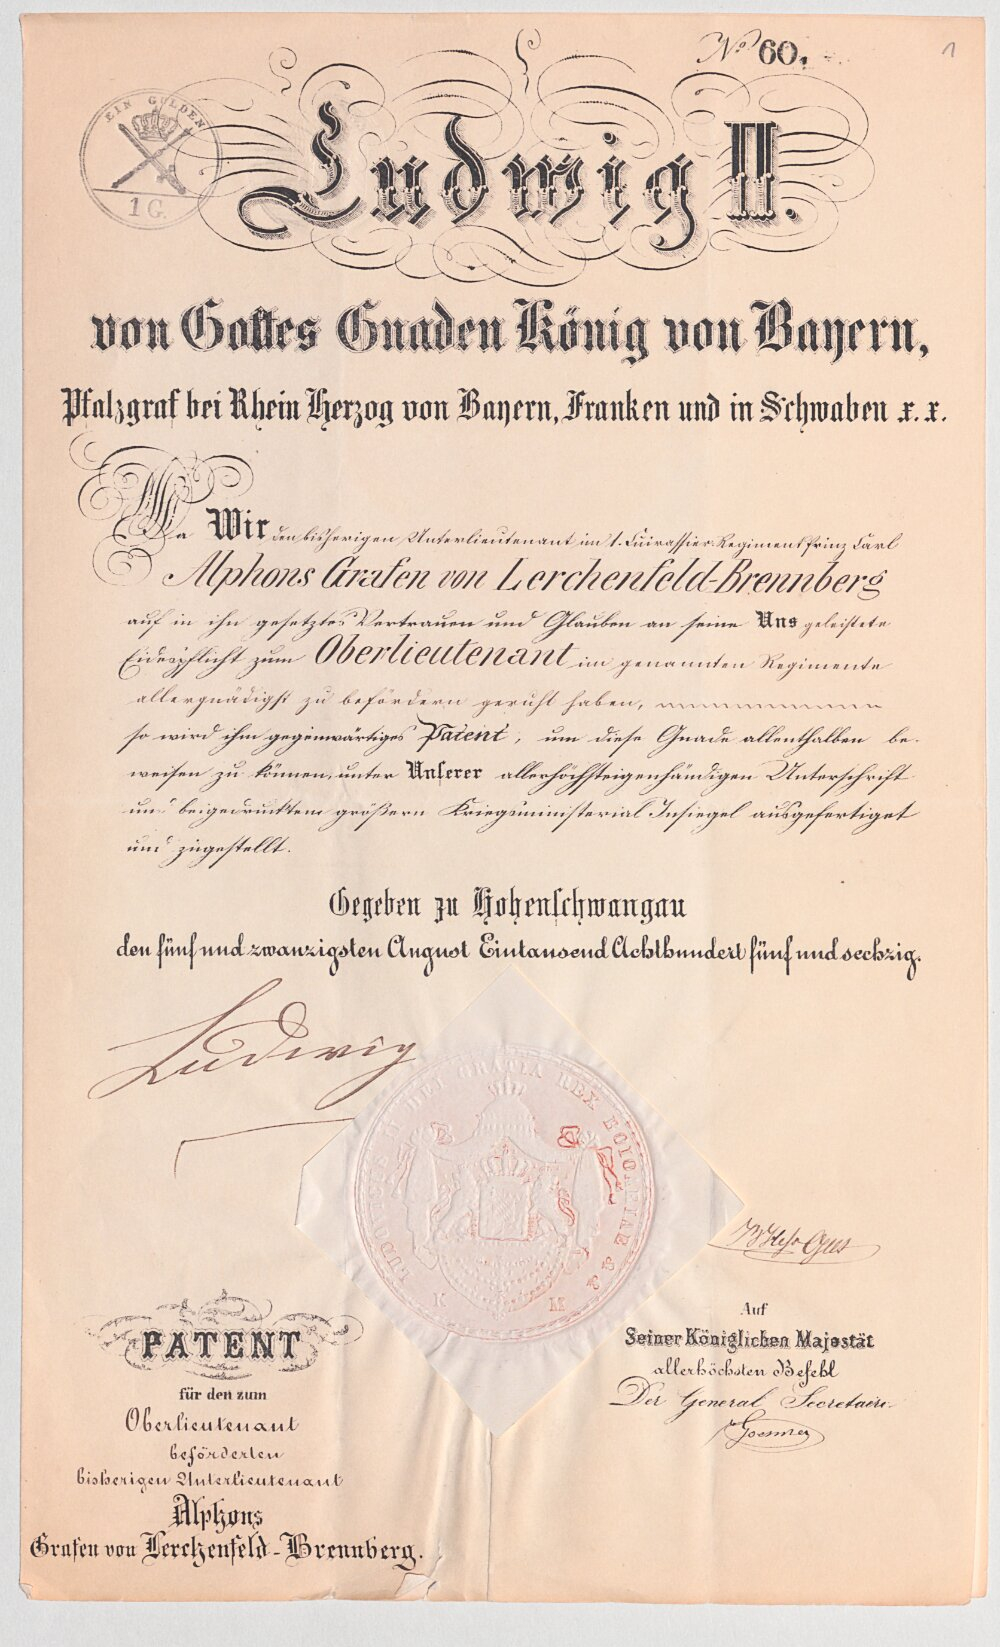 No 60.
1
EIN GULDEN
1 G.
Ludwig II.
von Gottes Gnaden König von Bayern,
Pfalzgraf bei Rhein Herzog von Bayern, Franken und in Schwaben x. x.
Da Wir den bisherigen Unterlieutenant im 1. Cuirassier-Regiment Prinz Carl
Alphons Grafen von Lerchenfeld-Brennberg
auf in ihn gesetztes Vertrauen und Glauben an seine Uns geleistete
Eidespflicht zum Oberlieutenant im genannten Regimente
allergnädigst zu befördern geruht haben,
so wird ihm gegenwärtiges Patent, um diese Gnade allenthalben be-
weisen zu können, unter Unserer allerhöchsteigenhändigen Unterschrift
und beigedrucktem größern Kriegsministerial Insiegel ausgefertiget
und zugestellt.
Gegeben zu Hohenschwangau
den fünf und zwanzigsten August Eintausend Achthundert fünf und sechzig.
Ludwig
LUDOVICUS II DEI GRATIA REX BOIOARIAE
K M
PATENT
für den zum
Oberlieutenant
beförderten
bisherigen Unterlieutenant
Alphons
Grafen von Lerchenfeld-Brennberg.
Auf
Seiner Königlichen Majestät
allerhöchsten Befehl
Der General Secretaire